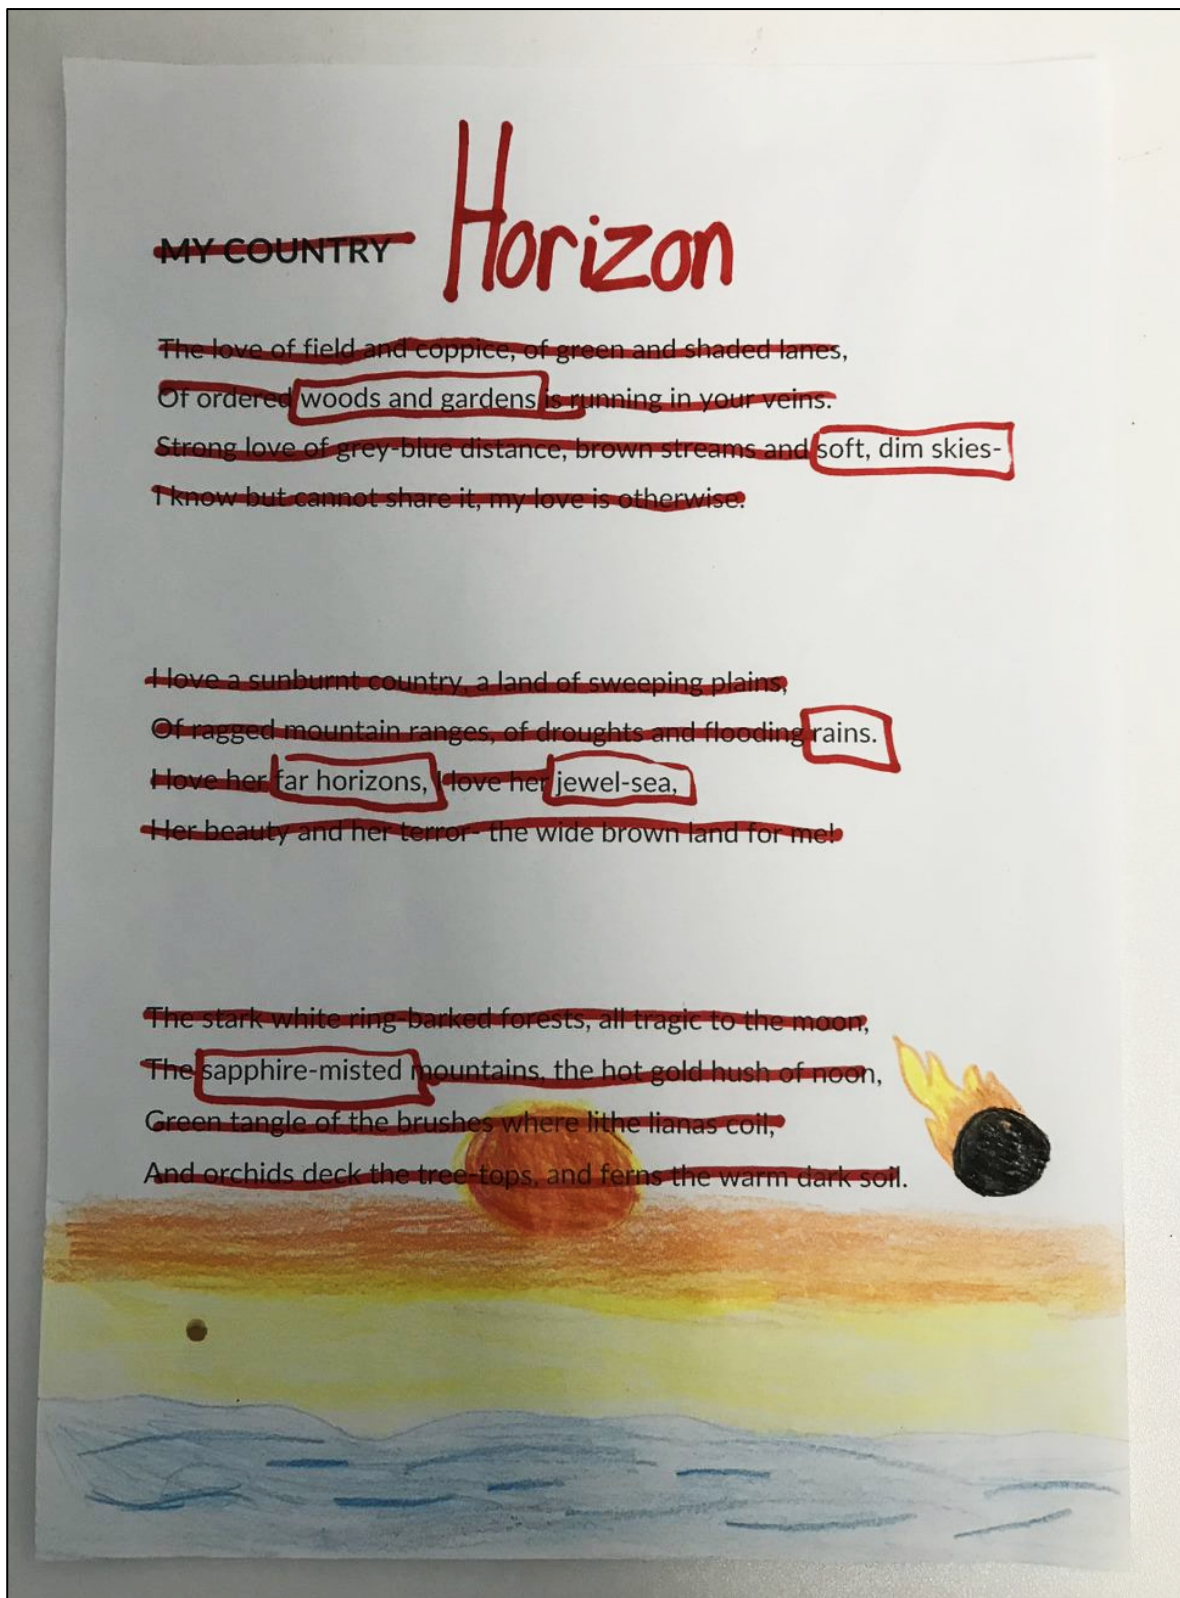 MY COUNTRY Horizon
The love of field and coppice, of green and shaded lanes,
Of ordered woods and gardens is running in your veins.
Strong love of grey-blue distance, brown streams and soft, dim skies-
I know but cannot share it, my love is otherwise.
I love a sunburnt country, a land of sweeping plains,
Of ragged mountain ranges, of droughts and flooding rains.
I love her far horizons, I love her jewel-sea,
Her beauty and her terror- the wide brown land for me!
The stark white ring-barked forests, all tragic to the moon,
The sapphire-misted mountains, the hot gold hush of noon,
Green tangle of the brushes where lithe lianas coil,
And orchids deck the tree-tops, and ferns the warm dark soil.